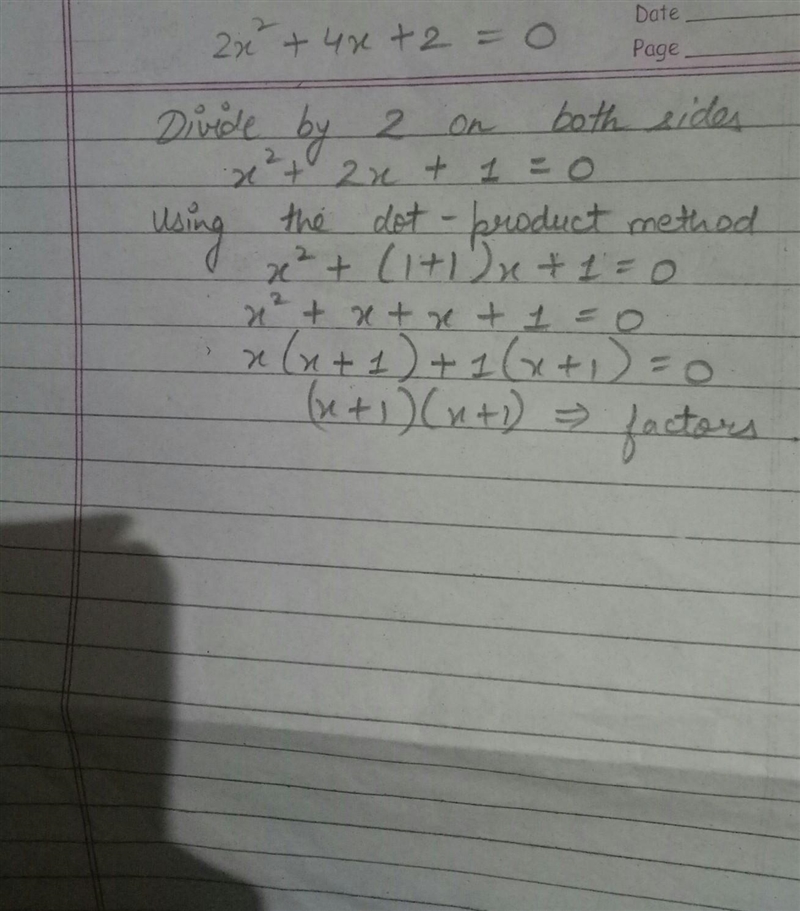 Date
2x² + 4x + 2 = 0
Page
Divide by 2 on both sides
x² + 2x + 1 = 0
Using the dot-product method
x² + (1+1)x + 1 = 0
x² + x + x + 1 = 0
x(x + 1) + 1(x+1) = 0
(x+1)(x+1) ⇒ factors.